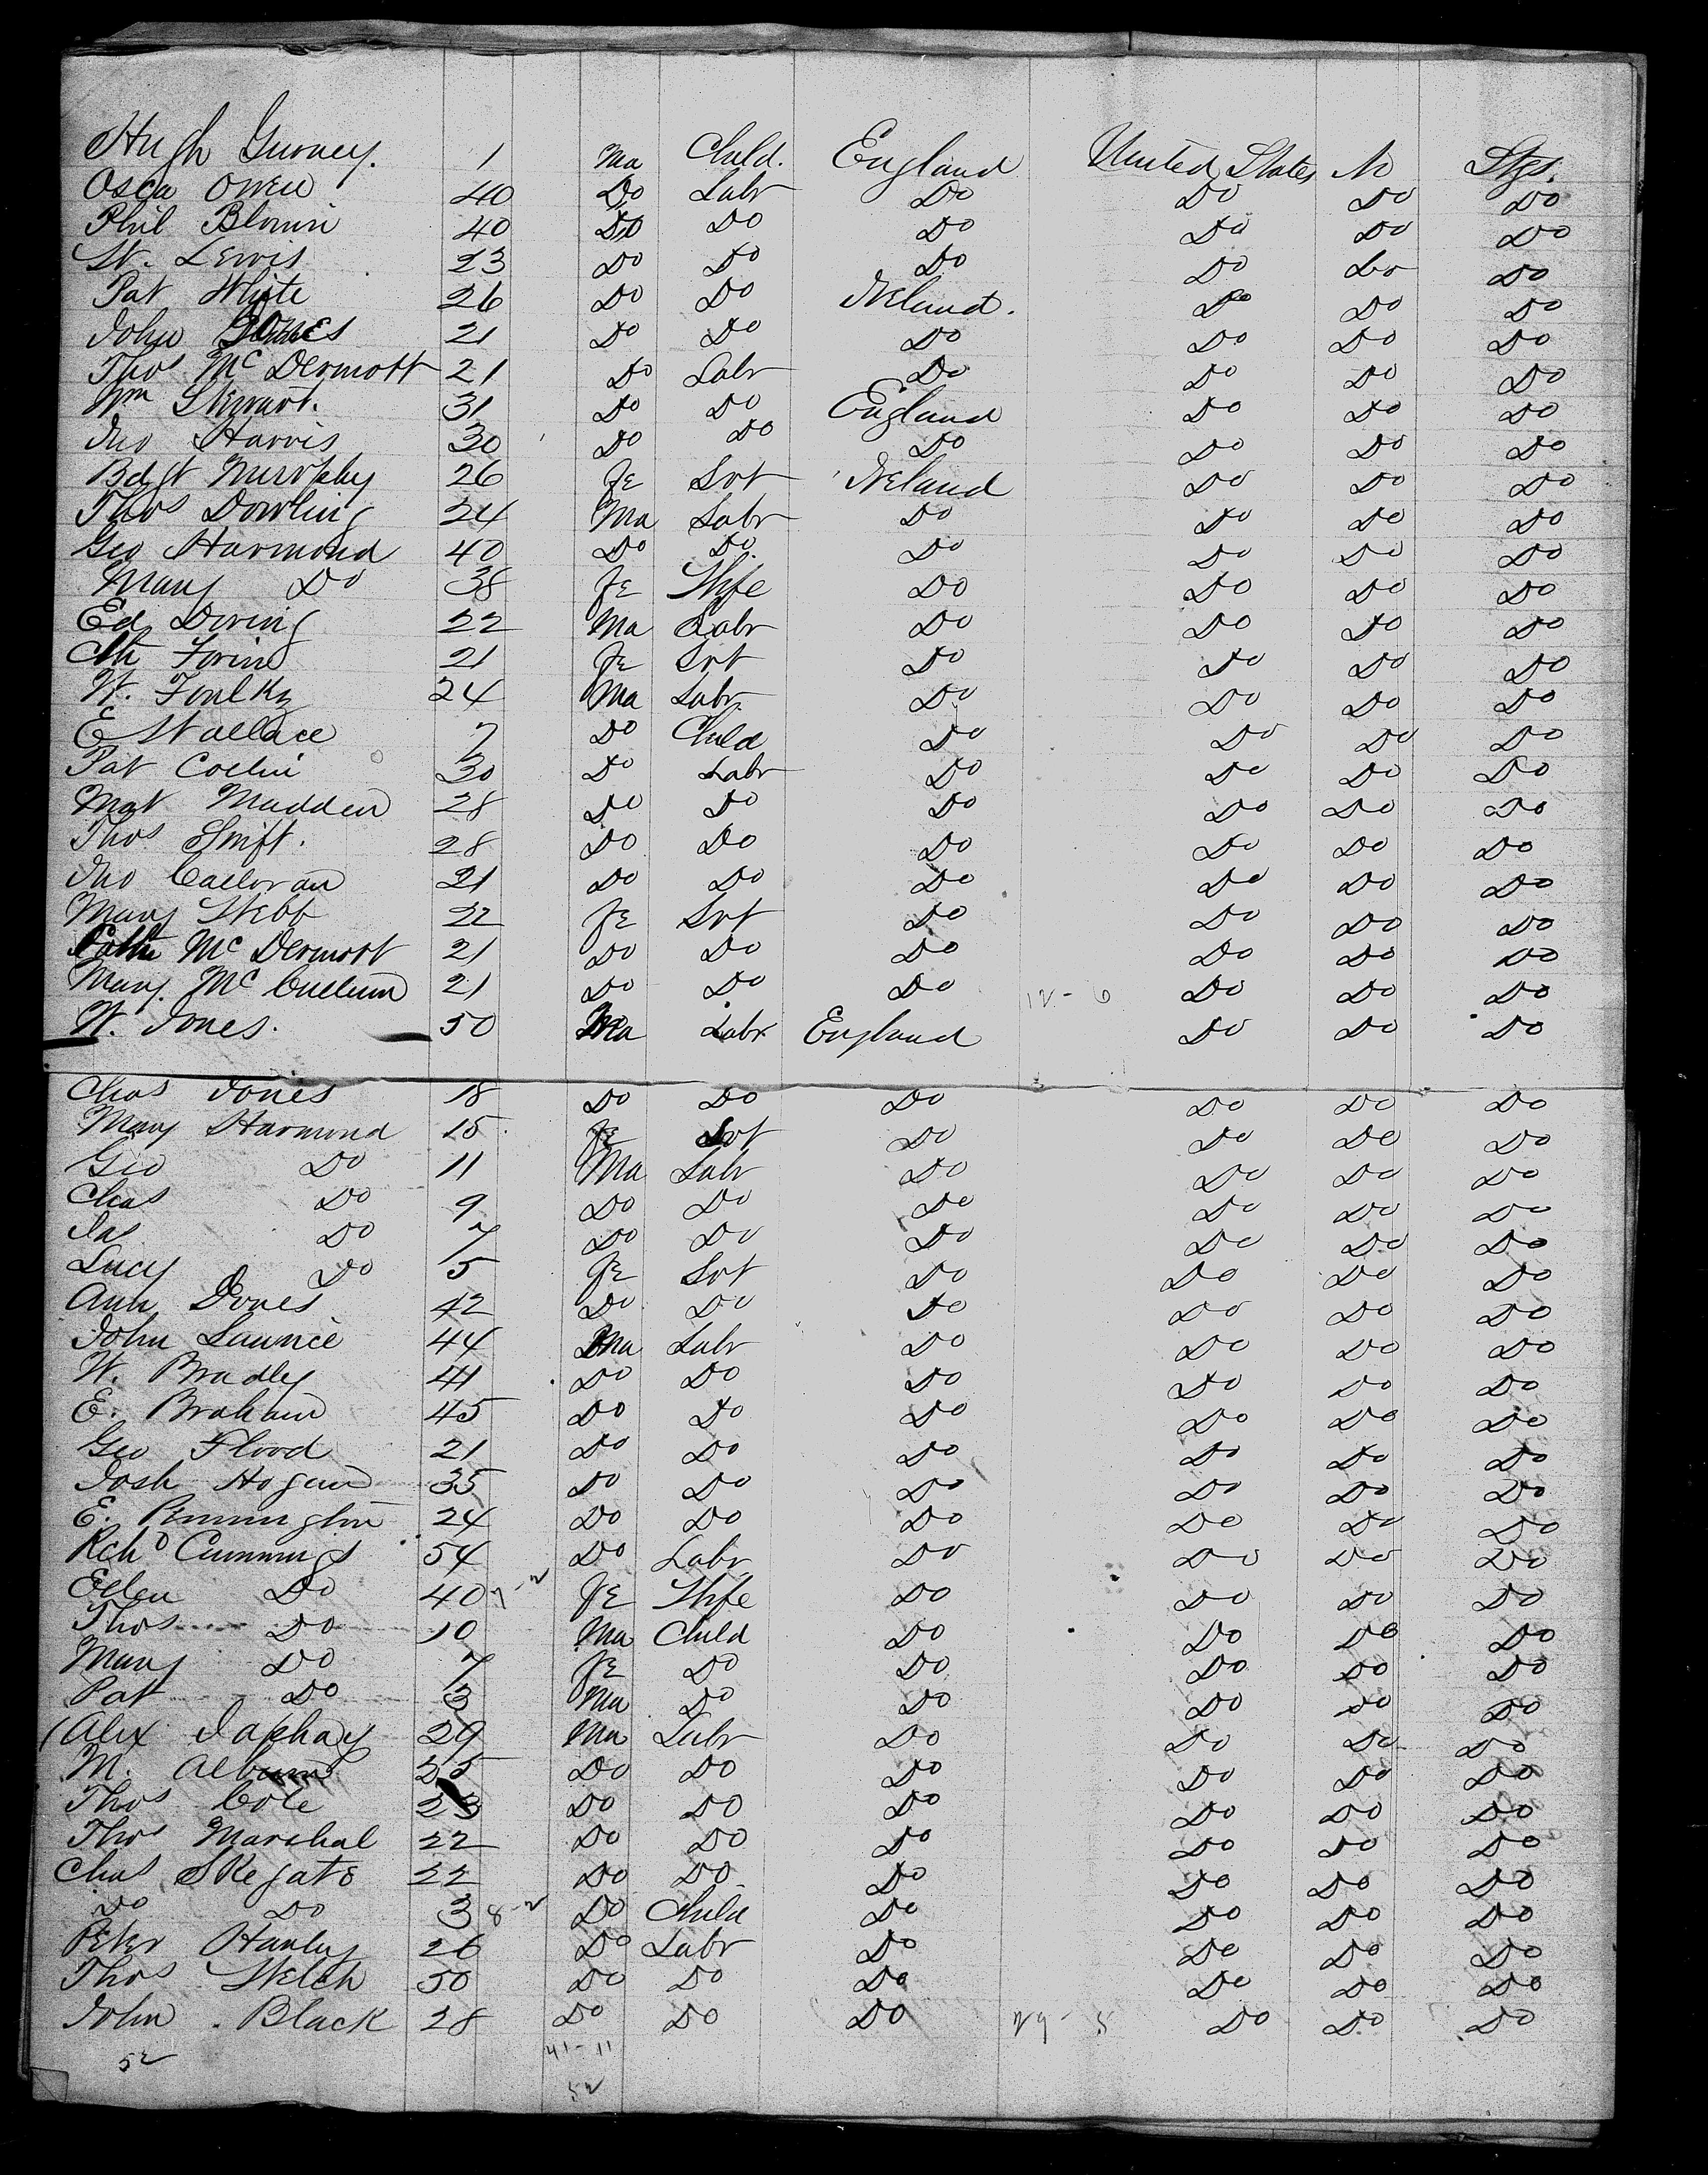 Hugh Gurney. 1 Ma Child. England United States No Stge.
Osca Owen 40 Do Labr Do Do Do Do
Phil 40 Do Do Do Do Do Do
St. Lewis 23 Do Do Do Do Do Do
Pat White 26 Do Do Ireland. Do Do Do
John Jones 21 Do Do Do Do Do Do
Thos McDermott 21 Do Labr Do Do Do Do
Wm Stewart. 31 Do Do England Do Do Do
Jno Harris 30 Do Do Do Do Do Do
Bdgt Murphy 26 Fe Svt Ireland Do Do Do
Thos Dowling 24 Ma Labr Do Do Do Do
Geo Harmond 40 Do Do. Do Do Do Do
Mary Do 38 Fe Wife Do Do Do Do
Ed Doring 22 Ma Labr Do Do Do Do
21 Fe Svt Do Do Do Do
W. 24 Ma Labr Do Do Do Do
E Wallace 7 Do Child Do Do Do Do
Pat Collin 30 Do Labr Do Do Do Do
Mat Madden 28 Do Do Do Do Do Do
Thos Swift. 28 Do Do Do Do Do Do
Jno Calloran 21 Do Do Do Do Do Do
Mary Webb 22 Fe Svt Do Do Do Do
Cath McDermott 21 Do Do Do Do Do Do
Mary. McCullum 21 Do Do Do 12-6 Do Do Do
W. Jones. 50 Ma Labr England Do Do Do
Chas Jones 18 Do Do Do Do Do Do
Mary Harmond 15 Fe Svt Do Do Do Do
Geo Do 11 Ma Labr Do Do Do Do
Chas Do 9 Do Do Do Do Do Do
Jas Do 7 Do Do Do Do Do Do
Lucy Do 5 Fe Svt Do Do Do Do
Ann Jones 42 Do Do Do Do Do Do
John 44 Ma Labr Do Do Do Do
W. Bradley 41 Do Do Do Do Do Do
E. Braham 45 Do Do Do Do Do Do
Geo Flood 21 Do Do Do Do Do Do
Josh Hogan 35 Do Do Do Do Do Do
E. Pennington 24 Do Do Do Do Do Do
Rchd Cummings 54 Do Labr Do Do Do Do
Ellen Do 40 Fe Wife Do Do Do Do
Thos Do 10 Ma Child Do Do Do Do
Mary Do 7 Fe Do Do Do Do Do
Pat Do 3 Ma Do Do Do Do Do
Alex Japhay 29 Ma Labr Do Do Do Do
M. Album 35 Do Do Do Do Do Do
Thos Cole 23 Do Do Do Do Do Do
Thos Marshal 22 Do Do Do Do Do Do
Chas Skegate 22 Do Do Do Do Do Do
Do Do 3 Do Child Do Do Do Do
Peter Hanley 26 Do Labr Do Do Do Do
Thos Welch 50 Do Do Do Do Do Do
John Black 28 Do Do Do 29-5 Do Do Do
52 41-11
52